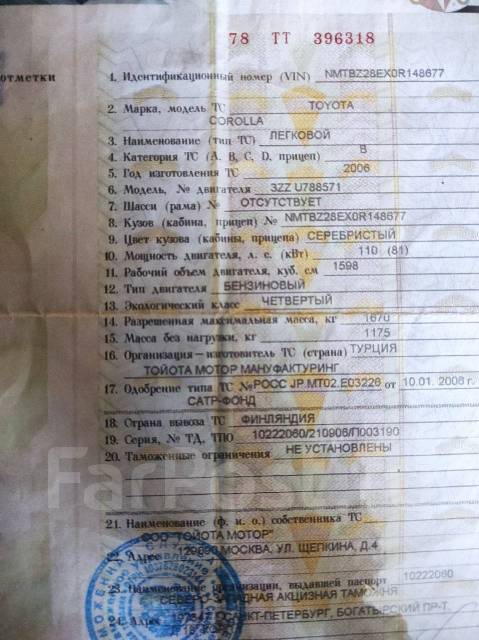 78 ТТ 396318
отметки
1. Идентификационный номер (VIN) NMTBZ28EX0R148677
2. Марка, модель ТС TOYOTA
COROLLA
3. Наименование (тип ТС) ЛЕГКОВОЙ
4. Категория ТС (А, В, С, D, прицеп) B
5. Год изготовления ТС 2006
6. Модель, № двигателя 3ZZ U788571
7. Шасси (рама) № ОТСУТСТВУЕТ
8. Кузов (кабина, прицеп) № NMTBZ28EX0R148677
9. Цвет кузова (кабины, прицепа) СЕРЕБРИСТЫЙ
10. Мощность двигателя, л. с. (кВт) 110 (81)
11. Рабочий объем двигателя, куб. см 1598
12. Тип двигателя БЕНЗИНОВЫЙ
13. Экологический класс ЧЕТВЕРТЫЙ
14. Разрешенная максимальная масса, кг 1670
15. Масса без нагрузки, кг 1175
16. Организация–изготовитель ТС (страна) ТУРЦИЯ
ТОЙОТА МОТОР МАНУФАКТУРИНГ
17. Одобрение типа ТС № РОСС JP.MT02.E03226 от 10.01.2006 г.
САТР-ФОНД
18. Страна вывоза ТС ФИНЛЯНДИЯ
19. Серия, № ТД, ТПО 10222060/210906/П003190
20. Таможенные ограничения НЕ УСТАНОВЛЕНЫ
FarPost
21. Наименование (ф. и. о.) собственника ТС
ООО "ТОЙОТА МОТОР"
22. Адрес 129090 МОСКВА, УЛ. ЩЕПКИНА, Д.4
23. Наименование организации, выдавшей паспорт 10222060
СЕВЕРО-ЗАПАДНАЯ АКЦИЗНАЯ ТАМОЖНЯ
24. Адрес САНКТ-ПЕТЕРБУРГ, БОГАТЫРСКИЙ ПР-Т,